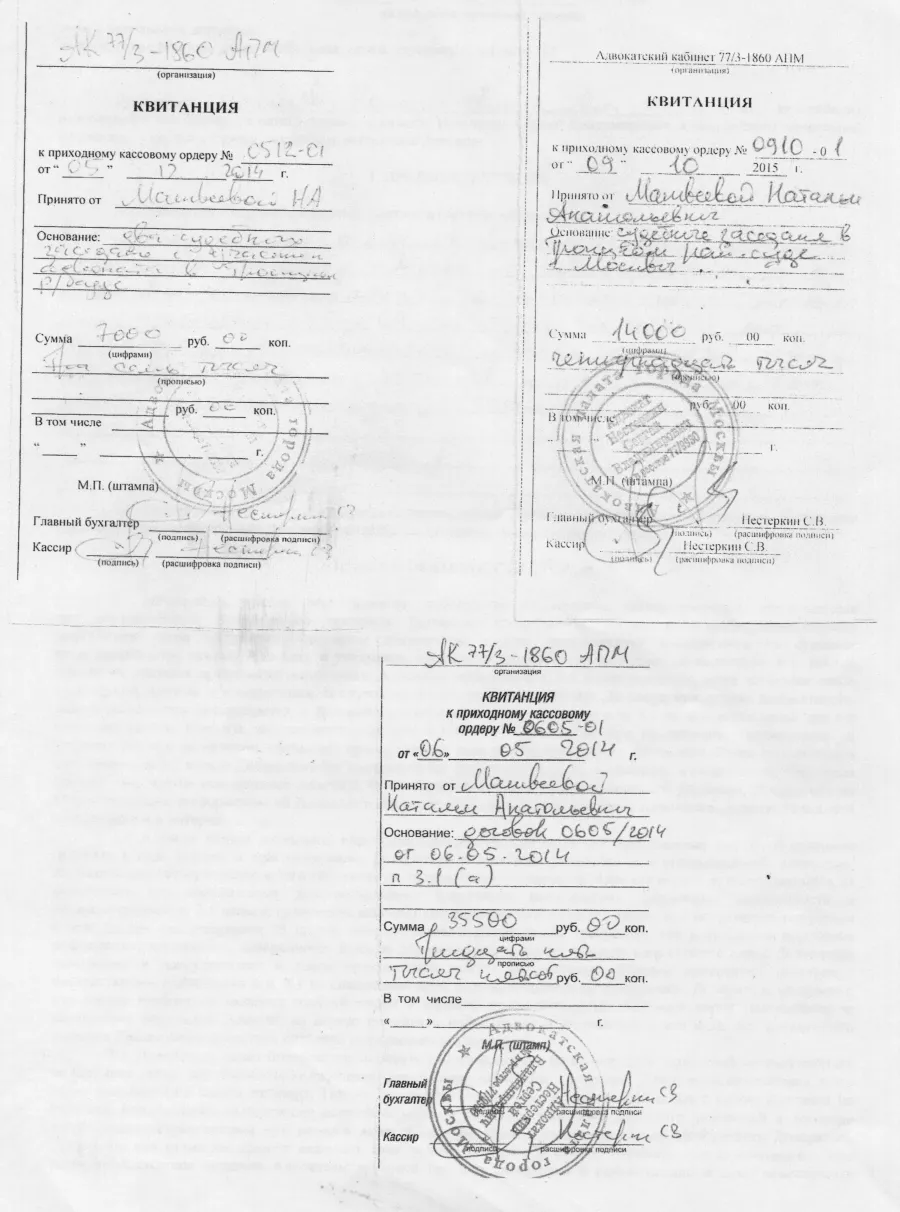 АК 77/3-1860 АПМ
(организация)
КВИТАНЦИЯ
к приходному кассовому ордеру № 0512-01
от “ 05 ” 12 2014 г.
Принято от Матвеевой НА
Основание: два судебных
заседания с участием
адвоката в
р/суде
Сумма 7000 руб. 00 коп.
(цифрами)
семь тысяч
(прописью)
руб. 00 коп.
В том числе
“ ” г.
М.П. (штампа)
Главный бухгалтер Нестеркин СВ
(подпись) (расшифровка подписи)
Кассир Нестеркин СВ
(подпись) (расшифровка подписи)
Адвокатский кабинет 77/3-1860 АПМ
(организация)
КВИТАНЦИЯ
к приходному кассовому ордеру № 0910 - 01
от “ 09 ” 10 2015 г.
Принято от Матвеевой Натальи
Анатольевич
Основание судебные заседания в
Троицком рай.суде
г. Москвы
Сумма 14000 руб. 00 коп.
(цифрами)
четырнадцать тысяч
(прописью)
руб. 00 коп.
В том числе
“ ” г.
М.П. (штампа)
Главный бухгалтер Нестеркин С.В.
(подпись) (расшифровка подписи)
Кассир Нестеркин С.В.
(подпись) (расшифровка подписи)
Адвокатская палата города Москвы
АК 77/3-1860 АПМ
организация
КВИТАНЦИЯ
к приходному кассовому
ордеру № 0605-01
от «06» 05 2014 г.
Принято от Матвеевой
Наталии Анатольевич
Основание: договор 0605/2014
от 06.05.2014
п 3.1 (а)
Сумма 35500 руб. 00 коп.
цифрами
Тридцать пять
прописью
тысяч пятьсот руб. 00 коп.
В том числе
« » г.
М.П. (штамп)
Главный
бухгалтер Нестеркин СВ
подпись расшифровка подписи
Кассир Нестеркин СВ
подпись расшифровка подписи
Адвокатская палата города Москвы